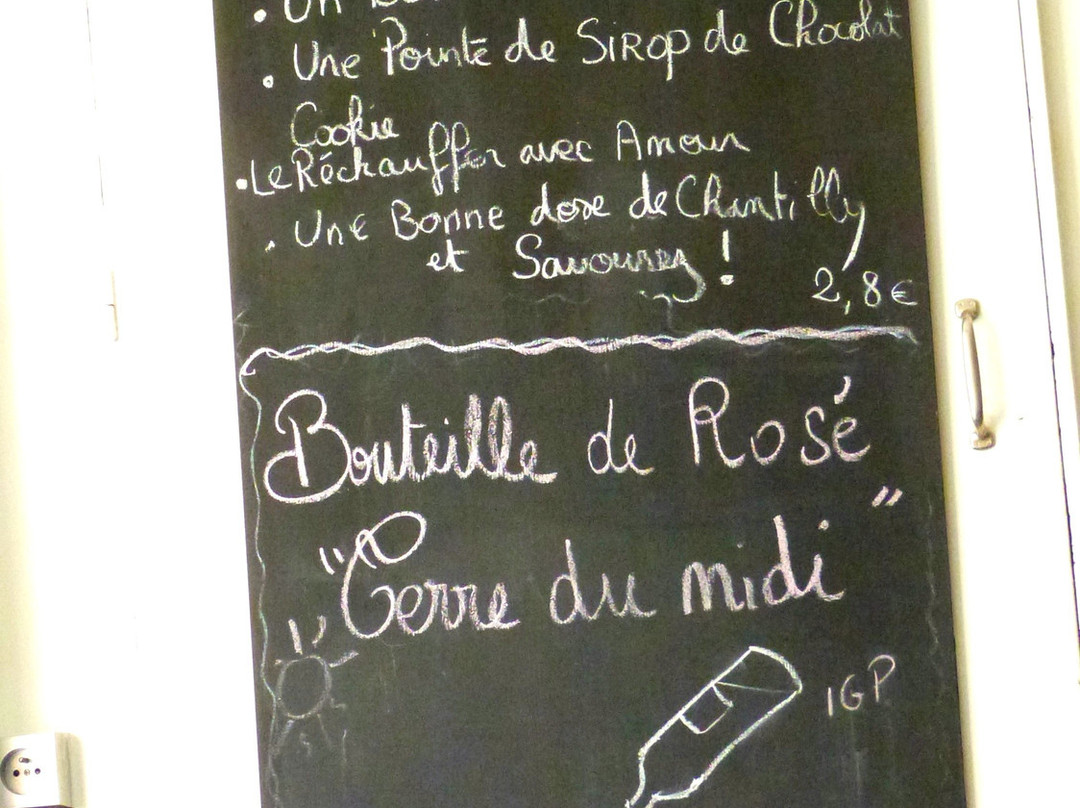 . Un
. Une Pointe de SiROP de Chocolat
Cookie
. Le Réchauffer avec Amour
. Une Bonne dose de Chantilly
et Savourez !
2,8€
Bouteille de Rosé
"Terre du midi"
IGP